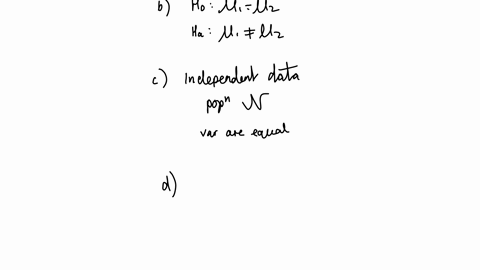 b) H₀ : μ₁ = μ₂
Ha : μ₁ ≠ μ₂
c) Independent data
popⁿ N
var are equal
d)